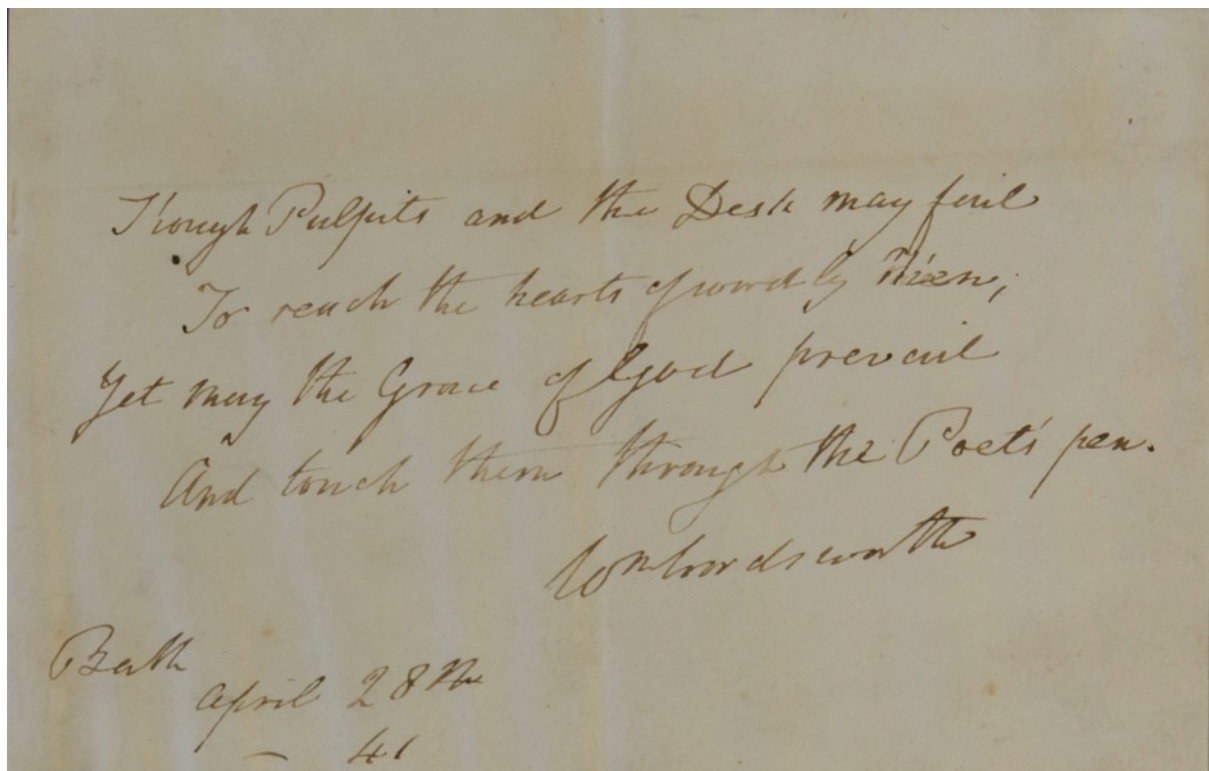 Though Pulpits and the Desk may fail
To reach the hearts of worldly Men;
Yet may the Grace of God prevail
And touch them through the Poet's pen.
Wm Wordsworth
Bath
April 28th
— 41